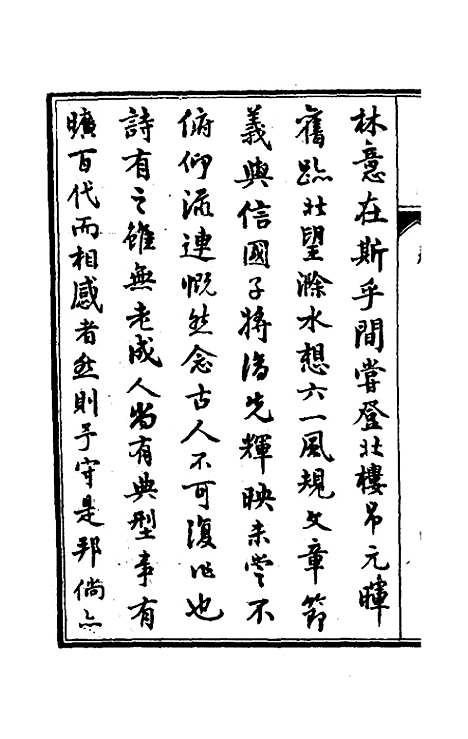 林意在斯乎間嘗登北樓吊元暉
舊跡北望滁水想六一風規文章節
義與信國子將後先輝映未嘗不
俯仰流連慨然念古人不可復作也
詩有之雖無老成人尚有典型事有
曠百代而相感者然則予守是邦倘亦